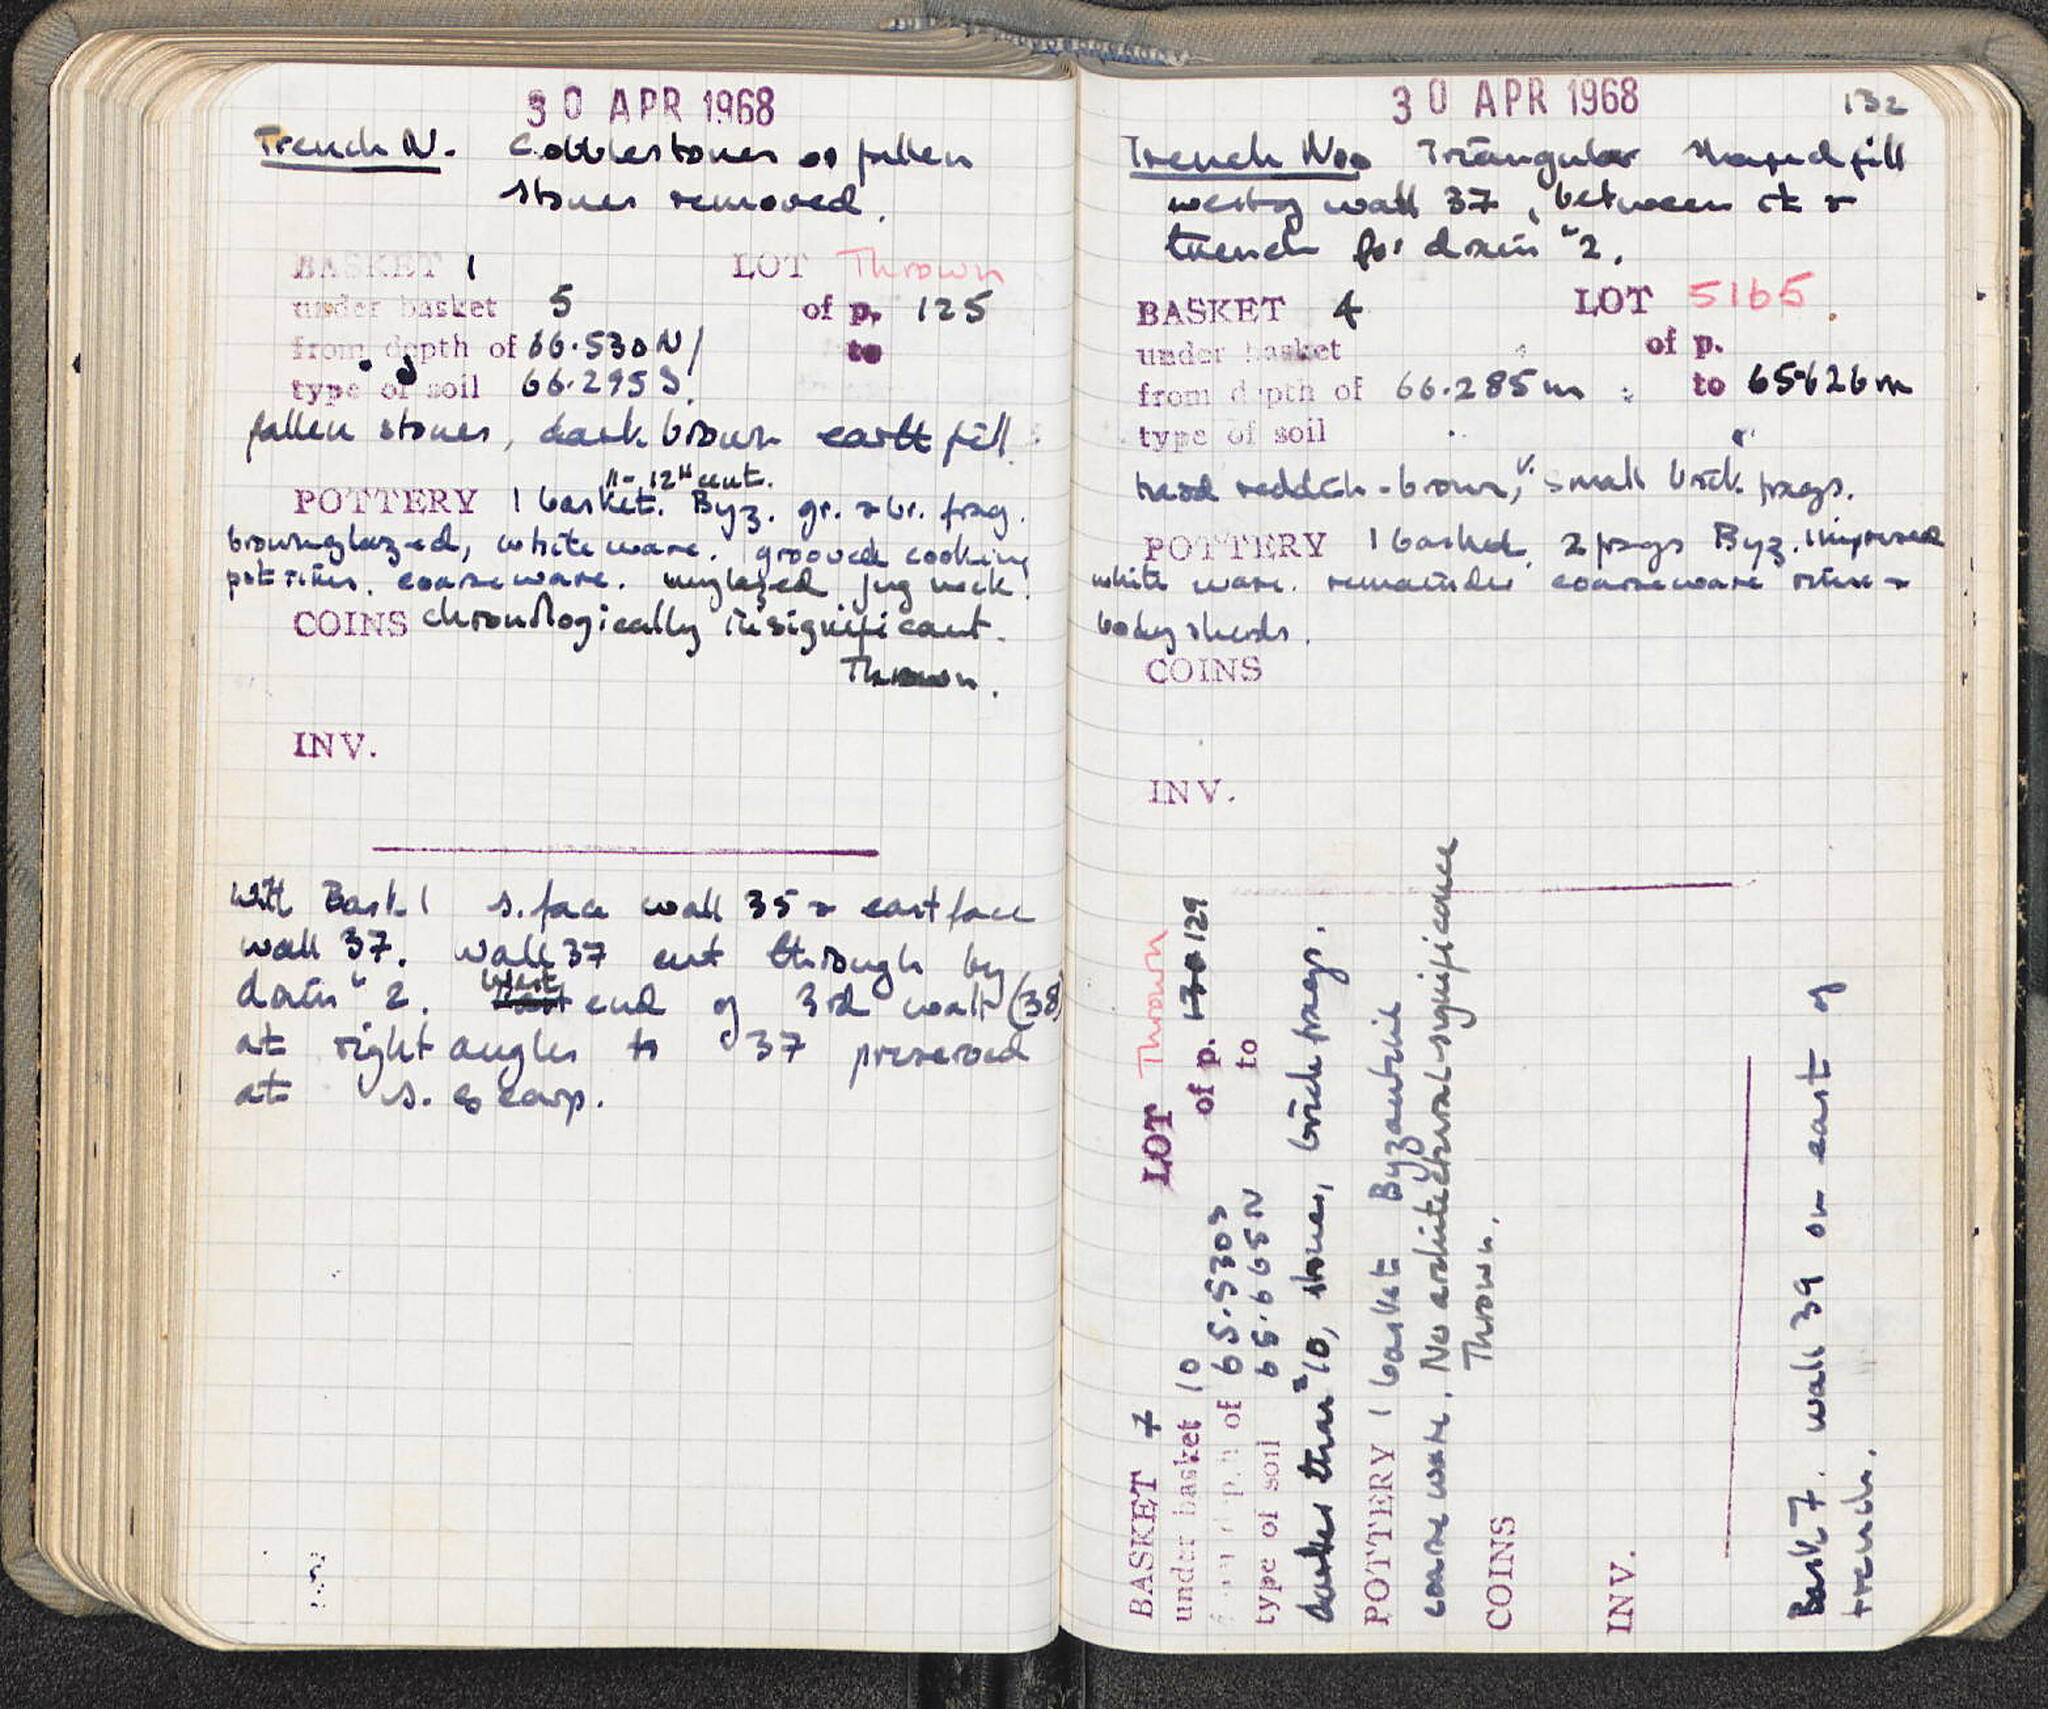 30 APR 1968
Trench N. Cobblestones or fallen
stones removed.
BASKET 1 LOT Thrown
under basket 5 of p. 125
from depth of 66.530N/ to
type of soil 66.295S.
fallen stones, dark brown earth fill.
11-12th cent.
POTTERY 1 basket. Byz. gr. & br. frag.
brownglazed, white ware. grooved cooking
pot rims. coarse ware. unglazed jug neck.
COINS chronologically insignificant.
Thrown.
INV.
With Bask. 1 s. face wall 35 & east face
wall 37. Wall 37 cut through by
drain " 2. West end of 3rd wall (38)
at right angles to 37 preserved
at s. scarp.
30 APR 1968 132
Trench N. Triangular shaped fill
west of wall 37, between it &
trench for drain " 2.
BASKET 4 LOT 5165
under basket of p.
from depth of 66.285m to 65.626m
type of soil
hard reddish-brown, v. small brick frags.
POTTERY 1 basket. 2 frags Byz. impressed
white ware. remainder coarse ware rims &
body sherds.
COINS
INV.
BASKET 7 LOT Thrown
under basket 10 of p. 130 129
from depth of 65.530S to
type of soil 65.665N
darker than "10, stones, brick frags.
POTTERY 1 basket Byzantine
coarse ware. No architectural significance
Thrown.
COINS
INV.
Bask 7. wall 39 on east of
trench.